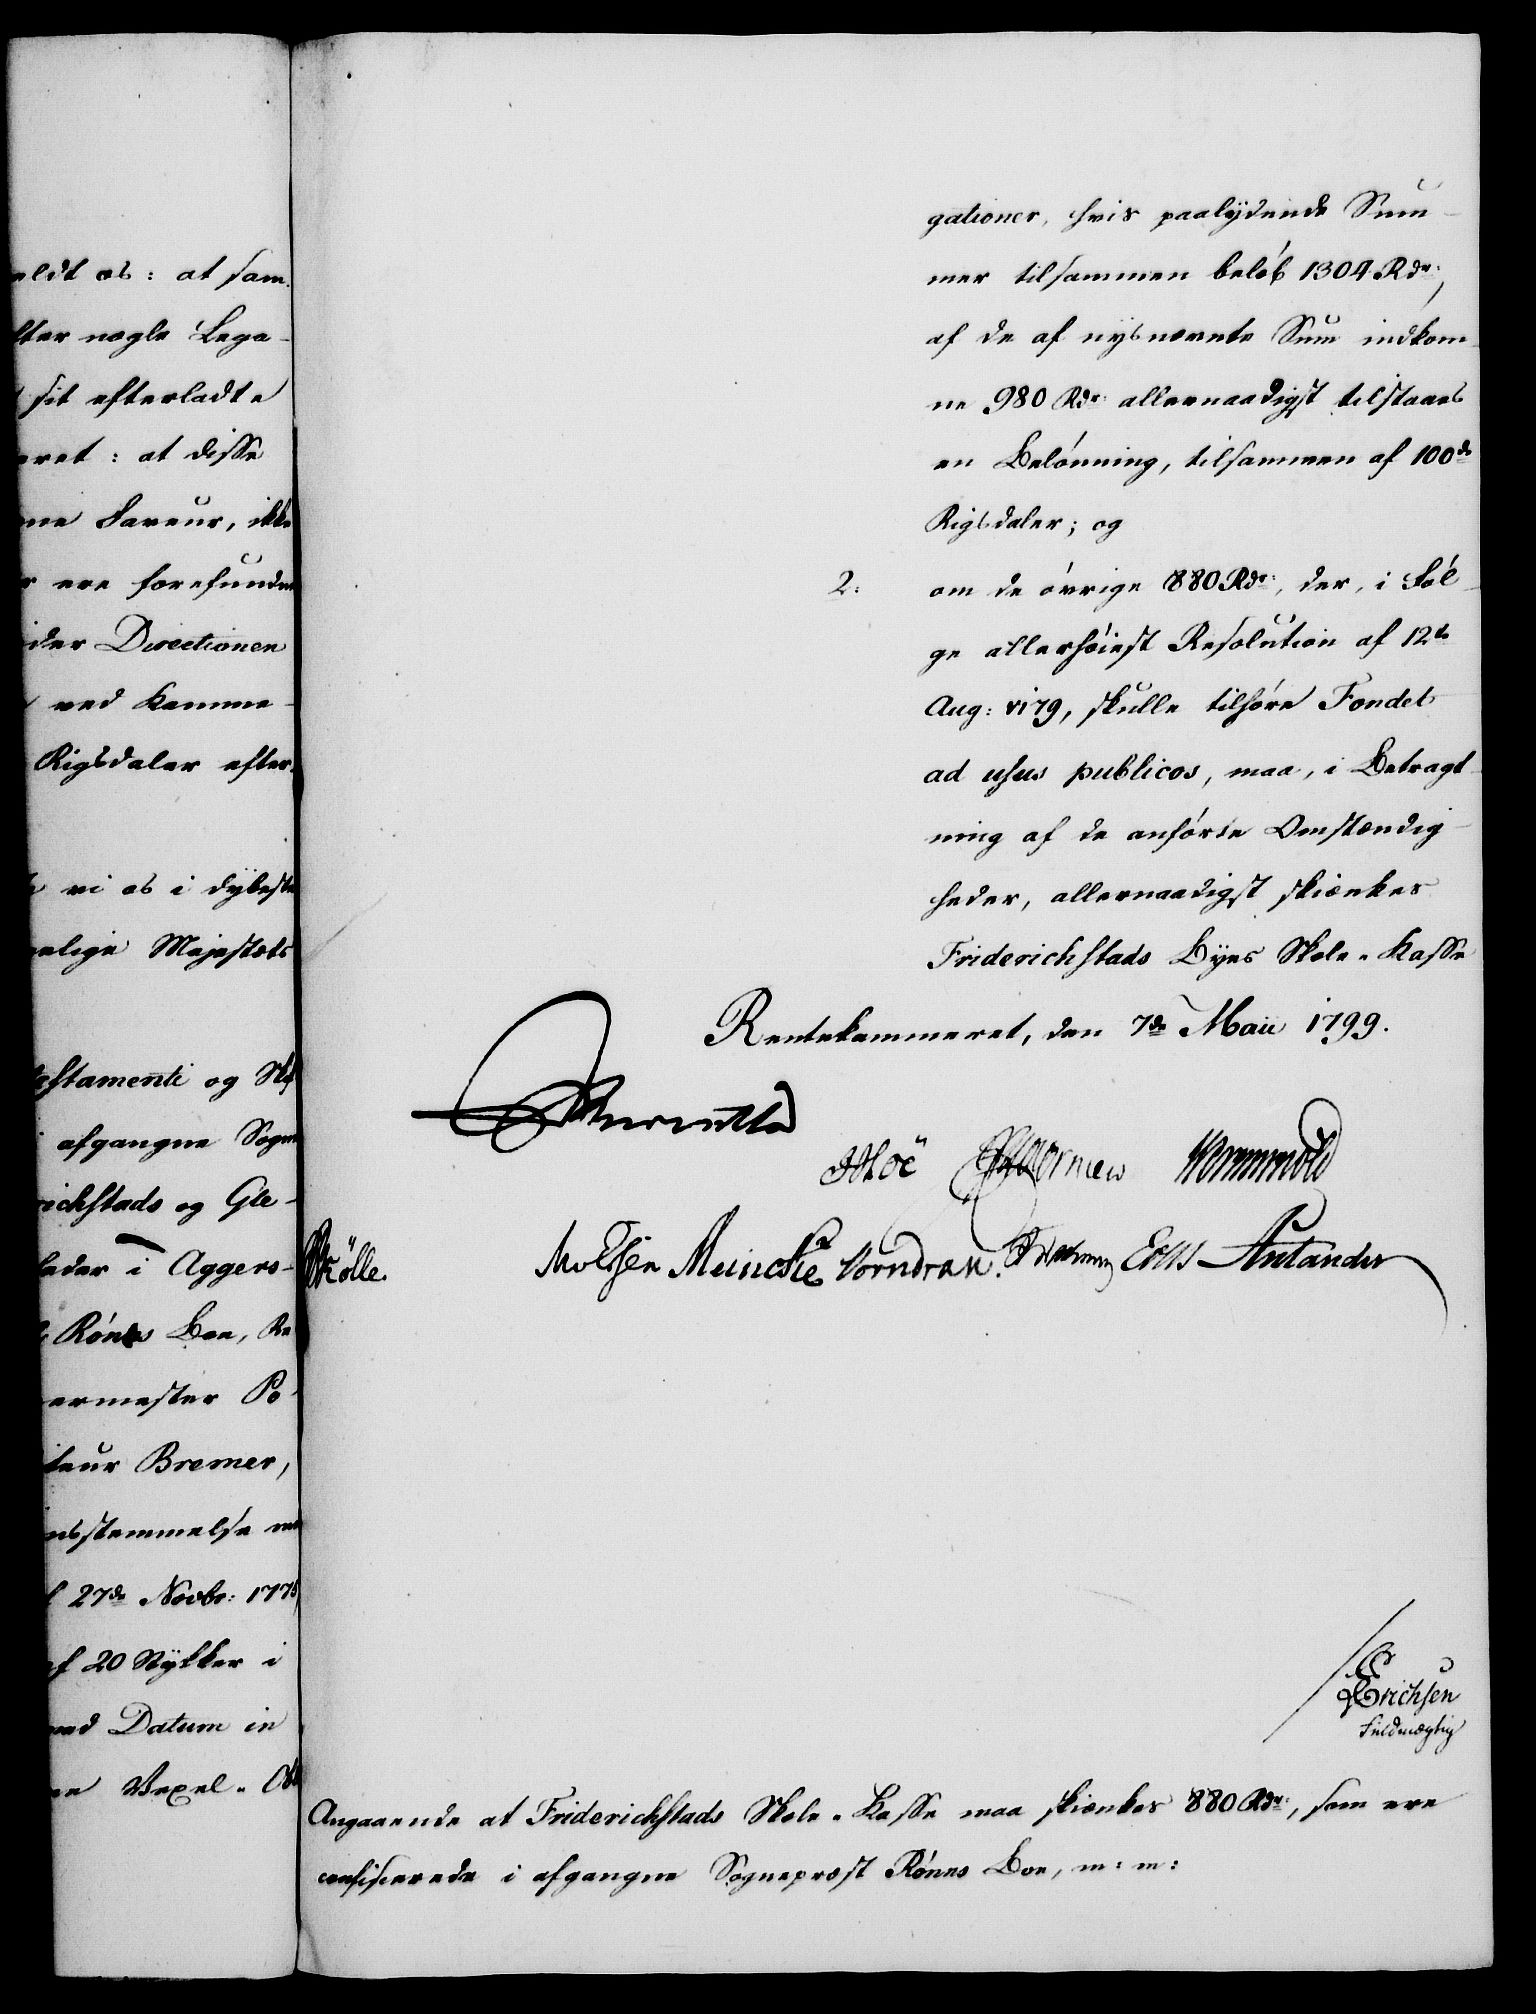 eldt os: at sam
lter nogle Lega-
sit efterladte
eret: at disse
ne Faveur, ikke
r ere forefunden
ider Directionen
ved Kamme-
Rigsdaler efter
vi os i dybeste
elige Majestæts
estamenti og
afgangne Sogne
richstads og Gle-
leder i Aggers-
Rönes Boe,
ermester Po-
teur Bremer,
nsstemmelse
27de Novbr: 1775
af 20 Stykker i
med Datum in
Vexel-
gationer, hvis paalydende Sum-
mer tilsammen beløb 1304 Rdr:,
af de af nysnævnte Sum indkom-
ne 980 Rdr: allernaadigst tilstaaes
en Belönning, tilsammen af 100de
Rigsdaler; og
2: om de övrige 880 Rdr:, der, i Föl-
ge allerhöiest Resolution af 12te
Aug: 1779, skulle tilhöre Fondet
ad usus publicos, maa, i Betragt-
ning af de anförte Omstændig-
heder, allernaadigst skiænkes
Friderichstads Byes Skole-Kasse
Rentekammeret, den 7de Maii 1799.
Reventlow
JMoe Wormskiold
Kölle. Moltsen Meincke Vorndran. Eskes Antander
Erichsen
Fuldmægtig
Angaaende at Friderichstads Skole-Kasse maa skiænkes 880 Rdr:, som ere
confiscerede i afgangne Sognepræst Rönes Boe, m: m: